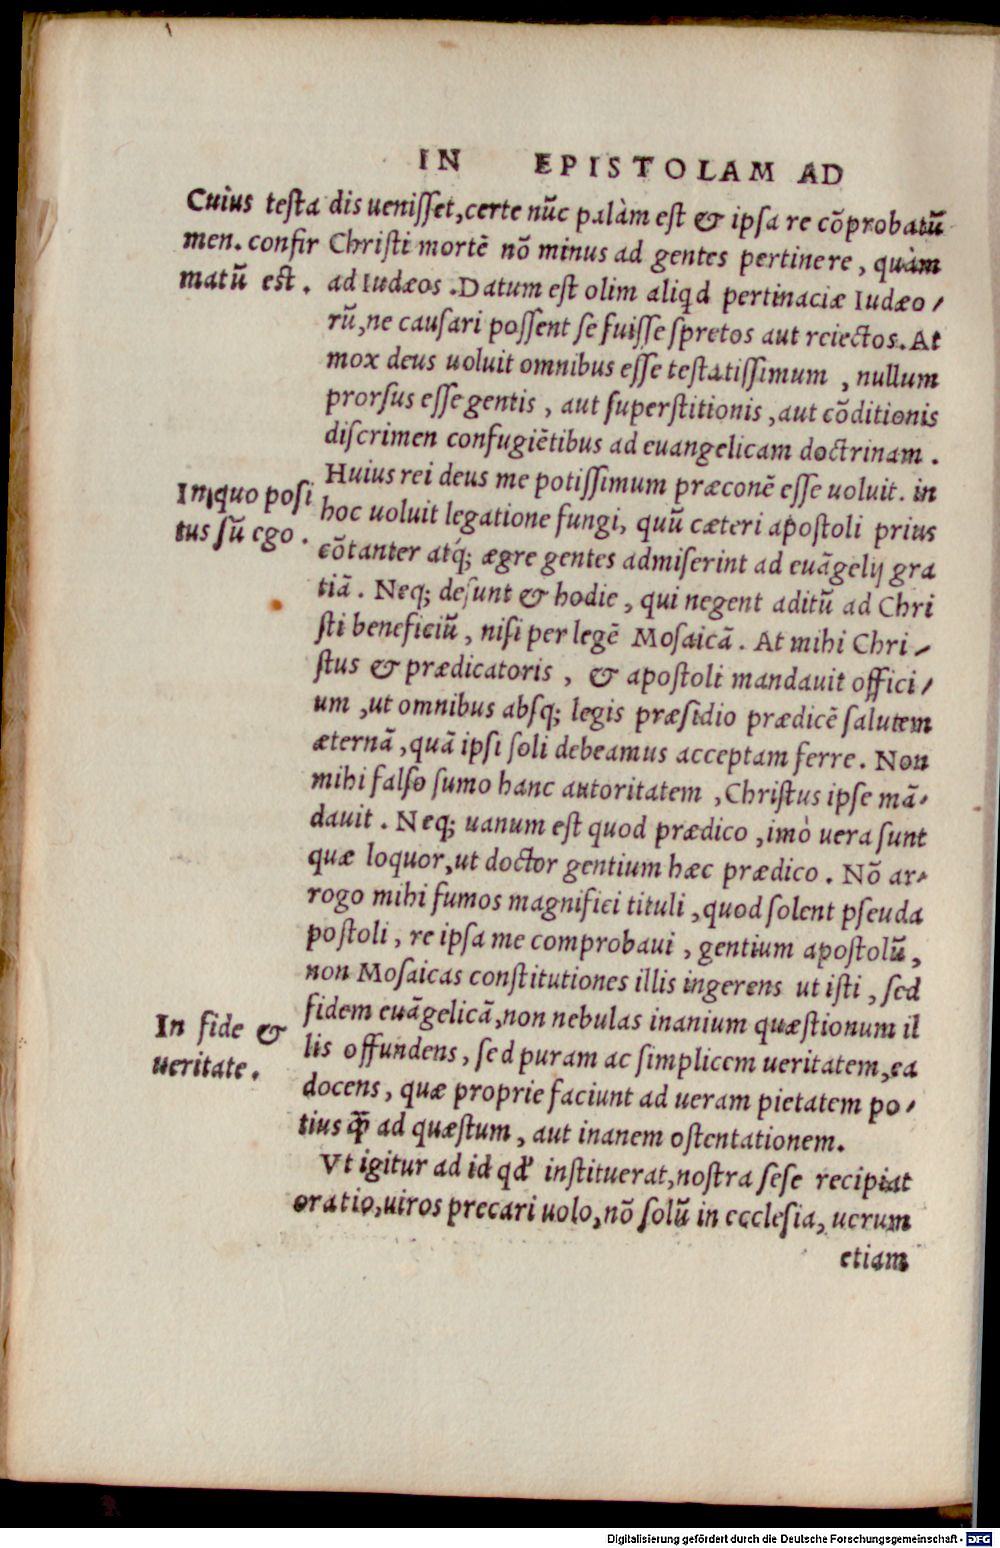 IN EPISTOLAM AD
Cuius testa
men. confir
matū est.
dis uenisset, certe nūc palàm est & ipsa re cōprobatū
Christi mortē nō minus ad gentes pertinere, quàm
ad Iudæos. Datum est olim aliqd pertinaciæ Iudæo/
rū, ne causari possent se fuisse spretos aut reiectos. At
mox deus uoluit omnibus esse testatissimum, nullum
prorsus esse gentis, aut superstitionis, aut cōditionis
discrimen confugiētibus ad euangelicam doctrinam.
In quo posi
tus sū ego.
Huius rei deus me potissimum præconē esse uoluit. in
hoc uoluit legatione fungi, quū cæteri apostoli prius
cōtanter atq́; ægre gentes admiserint ad euāgelij gra
tiā. Neq; desunt & hodie, qui negent aditū ad Chri
sti beneficiū, nisi per legē Mosaicā. At mihi Chri/
stus & prædicatoris, & apostoli mandauit offici/
um, ut omnibus absq; legis præsidio prædicē salutem
æternā, quā ipsi soli debeamus acceptam ferre. Non
mihi falso sumo hanc autoritatem, Christus ipse mā/
dauit. Neq; uanum est quod prædico, imò uera sunt
quæ loquor, ut doctor gentium hæc prædico. Nō ar/
rogo mihi fumos magnifici tituli, quod solent pseuda
postoli, re ipsa me comprobaui, gentium apostolū,
non Mosaicas constitutiones illis ingerens ut isti, sed
In fide &
ueritate.
fidem euāgelicā, non nebulas inanium quæstionum il
lis offundens, sed puram ac simplicem ueritatem, ea
docens, quæ proprie faciunt ad ueram pietatem po/
tius ꝙ̄ ad quæstum, aut inanem ostentationem.
Vt igitur ad id qd' instituerat, nostra sese recipiat
oratio, uiros precari uolo, nō solū in ecclesia, uerum
etiam
Digitalisierung gefördert durch die Deutsche Forschungsgemeinschaft - DFG